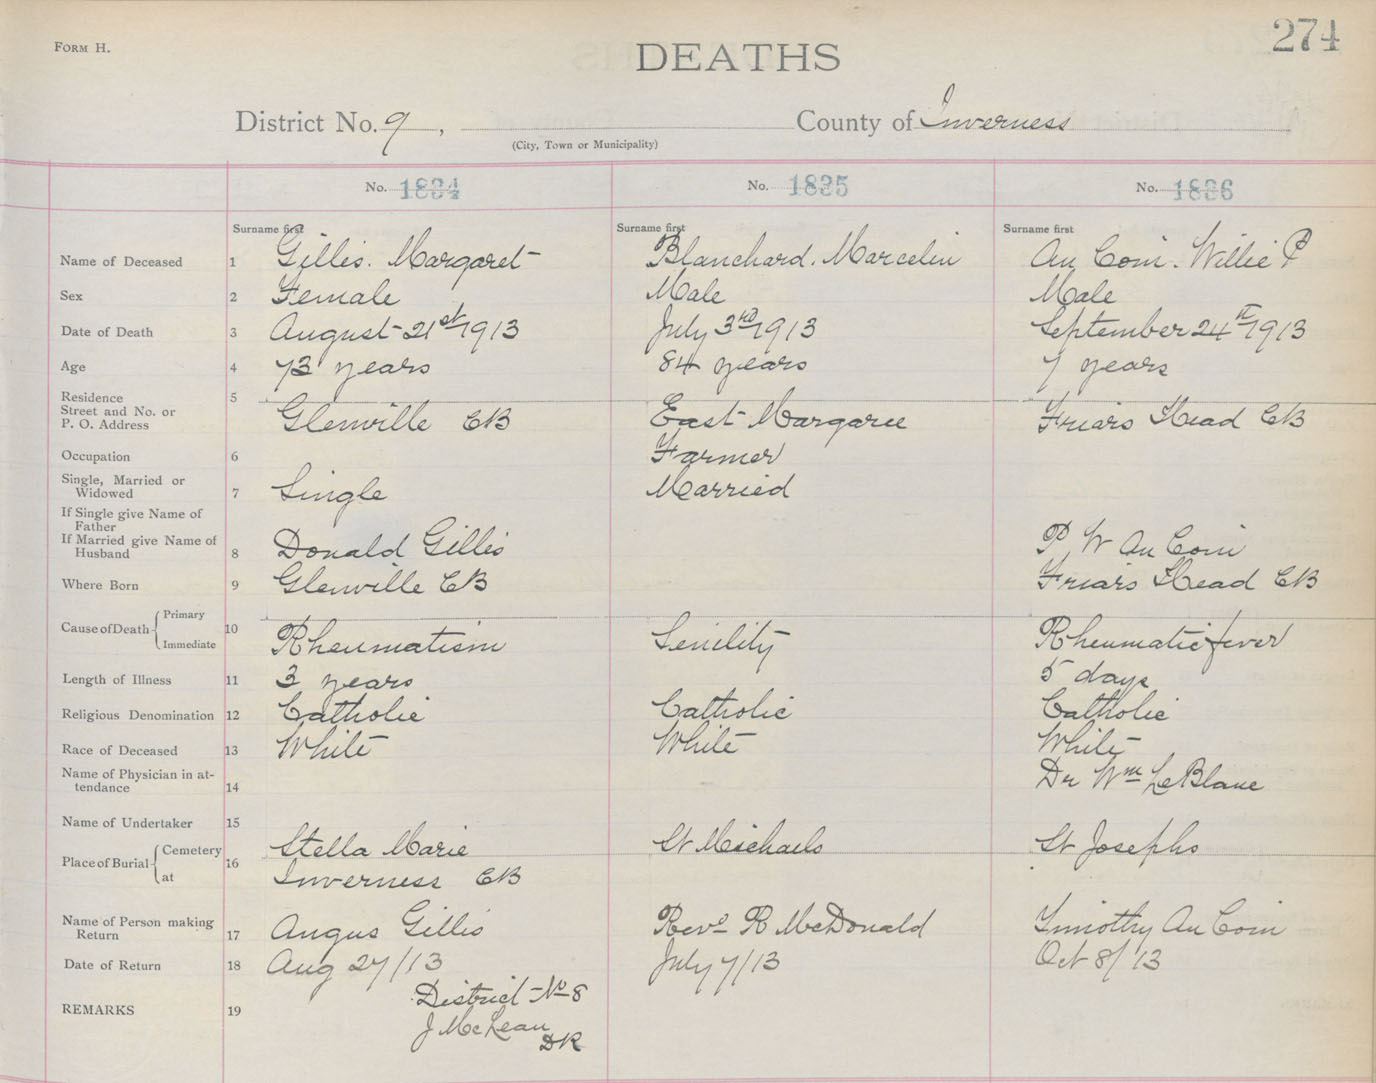 274
FORM H.
DEATHS
District No. 9, County of Inverness
(City, Town or Municipality)
No. 1834 No. 1835 No. 1836
Surname first Surname first Surname first
Name of Deceased 1 Gillis. Margaret Blanchard. Marcelin Au Coin. Willie P
Sex 2 Female Male Male
Date of Death 3 August 21st 1913 July 3rd 1913 September 24th 1913
Age 4 73 years 84 years 7 years
Residence 5
Street and No. or
P. O. Address Glenville CB East Margaree Friars Head CB
Occupation 6 Farmer
Single, Married or
Widowed 7 Single Married
If Single give Name of
Father
If Married give Name of
Husband 8 Donald Gillis P W Au Coin
Where Born 9 Glenville CB Friars Head CB
Cause of Death Primary
Immediate 10 Rheumatism Senility Rheumatic fever
Length of Illness 11 3 years 5 days
Religious Denomination 12 Catholic Catholic Catholic
Race of Deceased 13 White White White
Name of Physician in at-
tendance 14 Dr Wm LeBlanc
Name of Undertaker 15
Place of Burial Cemetery 16 Stella Marie St Michaels St Josephs
at Inverness CB
Name of Person making
Return 17 Angus Gillis Revd R McDonald Timothy Au Coin
Date of Return 18 Aug 27/13 July 7/13 Oct 8/13
REMARKS 19 District No 8
J McLean
DR